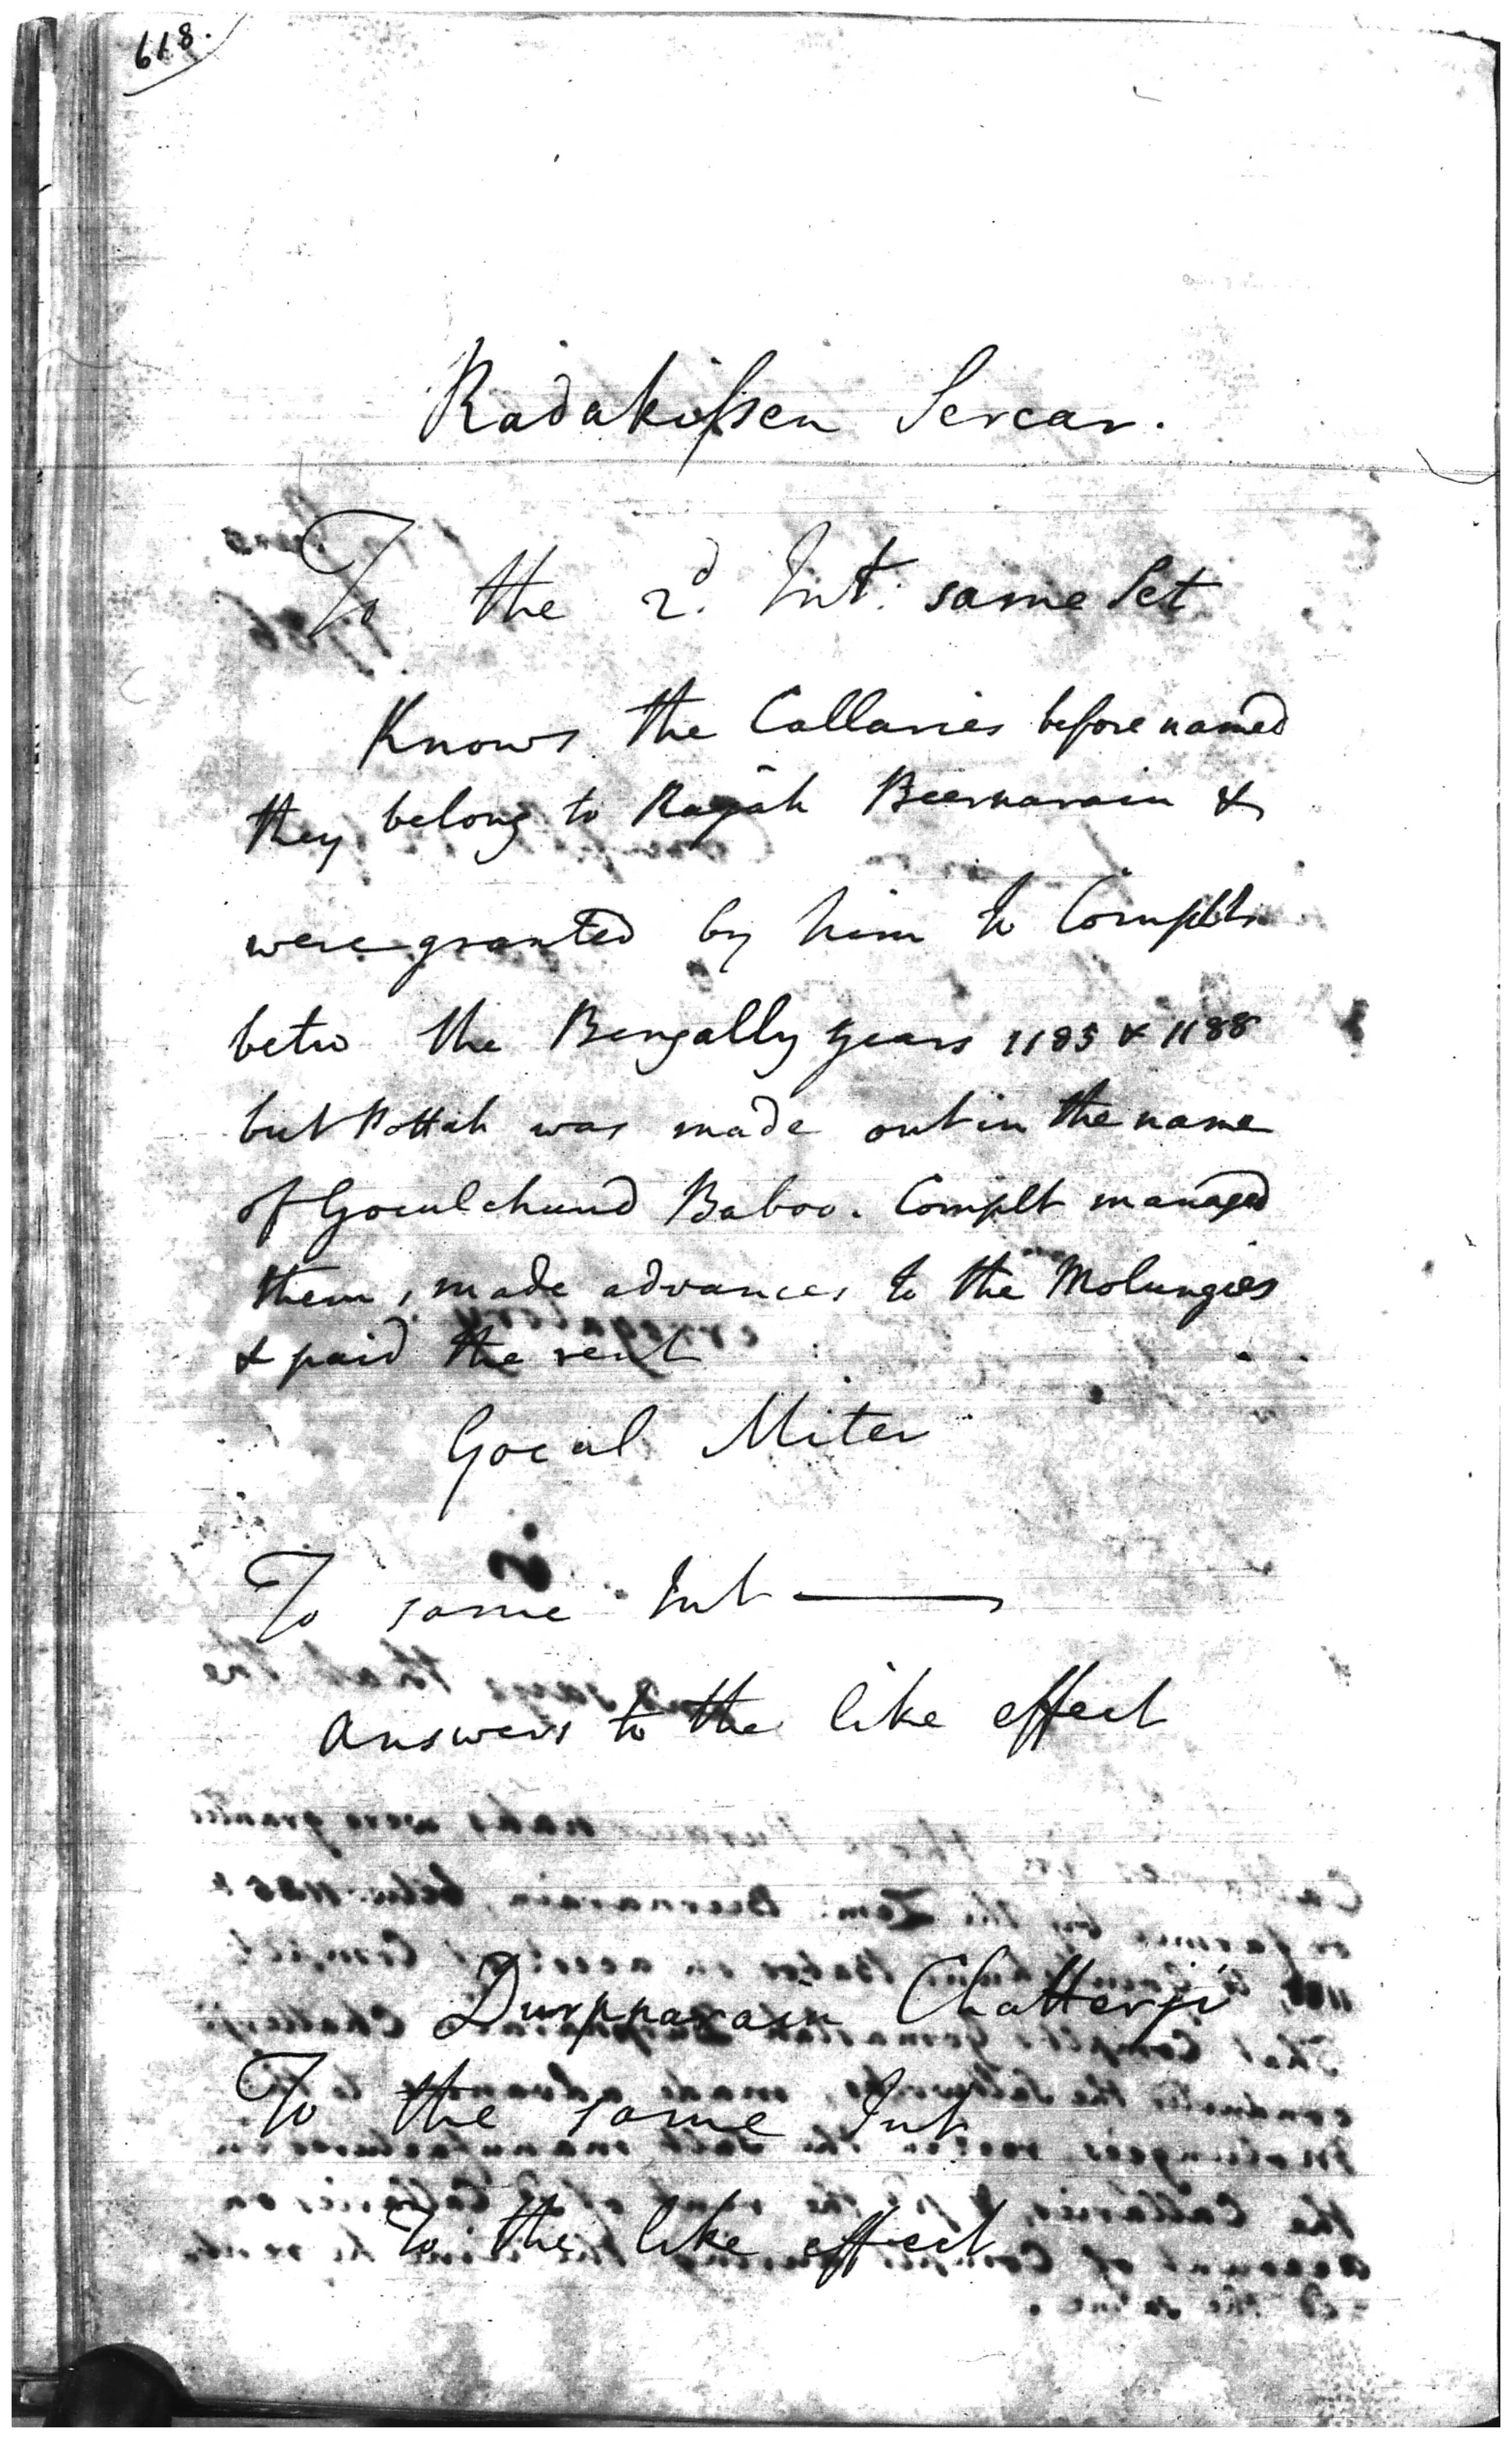 618.
Radakissen Sercar.
To the 2d. Int. same Set
Knows the Callaries before named
they belong to Rajah Beernarain &
were granted by him to Complt
betw the Bengally years 1185 & 1188
but Pottah was made out in the name
of Goculchund Baboo. Complt managed
them, made advances to the Molungies
& paid the rent
Gocul Miter
To same Int
answers to the like effect
Durpnarain Chatterji
To the same Int
To the like effect